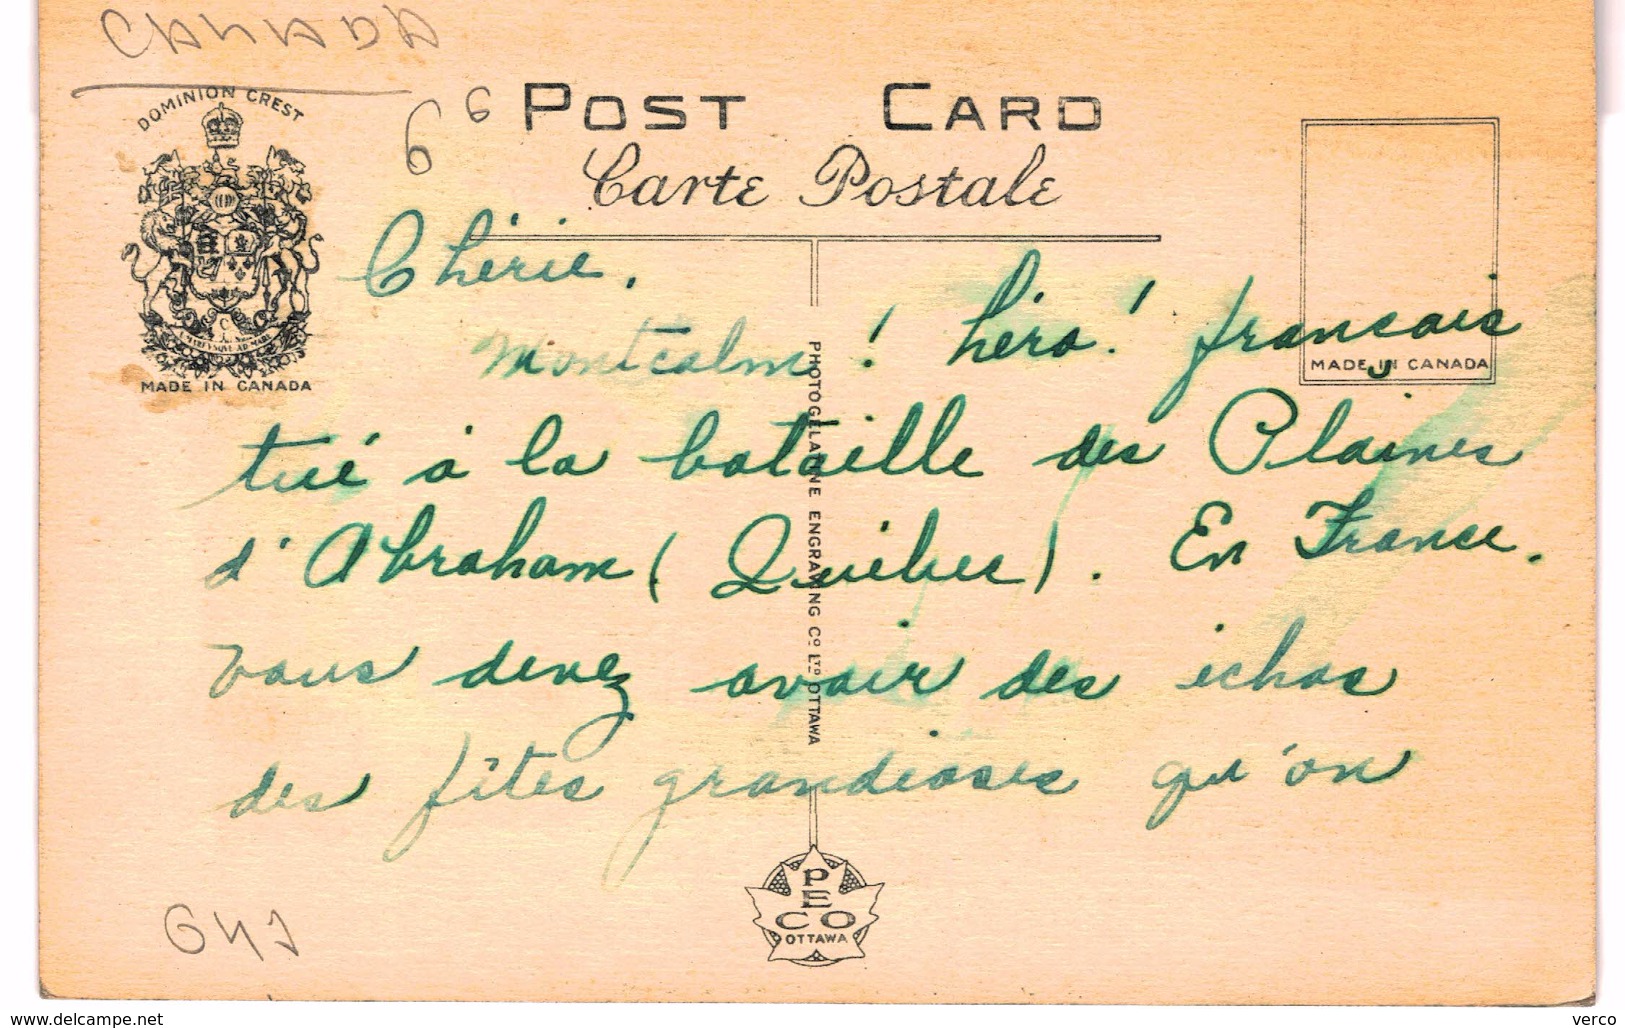 CANADA
DOMINION CREST
MADE IN CANADA
POST CARD
Carte Postale
Chérie,
Montcalm! héro! français
MADE IN CANADA
tué à la bataille des Plaines
d'Abraham (Québec). En France.
vous devez avoir des échos
des fêtes grandioses qu'on
PHOTOGELATINE ENGRAVING CO LTD OTTAWA
PECO
OTTAWA
www.delcampe.net
verco